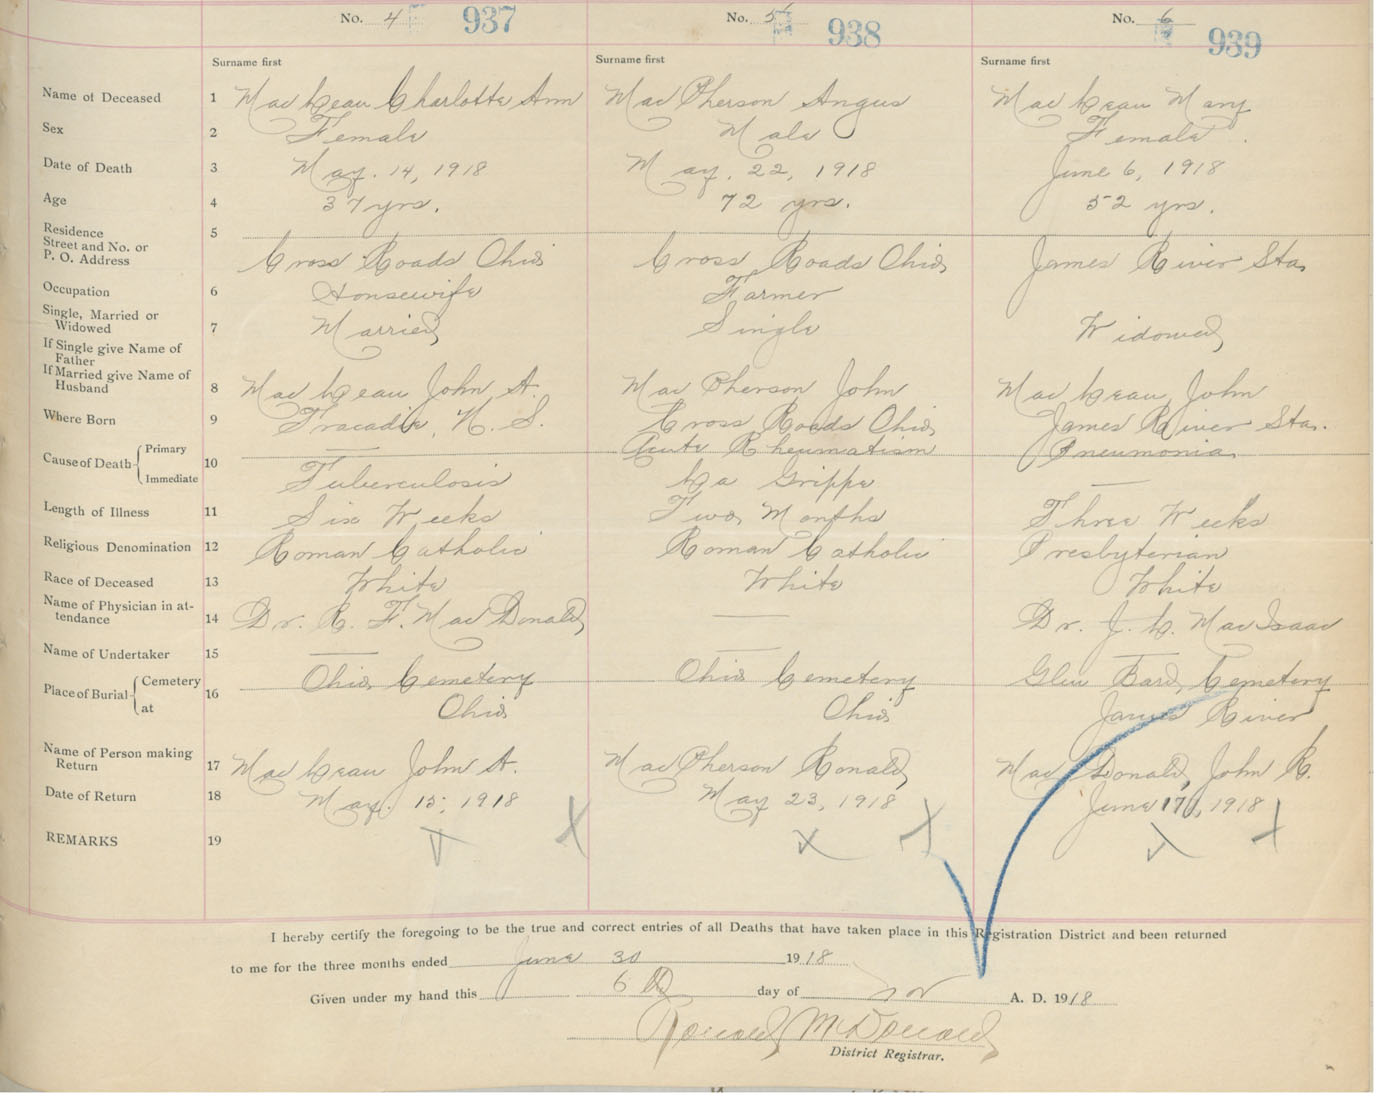 No. 4 937 No. 5 938 No. 6 939
Surname first Surname first Surname first
Name of Deceased 1 MacLean Charlotte Ann MacPherson Angus MacLean Mary
Sex 2 Female Male Female
Date of Death 3 May. 14, 1918 May. 22, 1918 June 6, 1918
Age 4 37 yrs. 72 yrs. 52 yrs.
Residence 5
Street and No. or
P. O. Address Cross Roads Ohio Cross Roads Ohio James River Sta.
Occupation 6 Housewife Farmer
Single, Married or
Widowed 7 Married Single Widowed
If Single give Name of
Father
If Married give Name of
Husband 8 MacLean John A. MacPherson John MacLean John
Where Born 9 Tracadie, N. S. Cross Roads Ohio James River Sta.
Cause of Death Primary 10 — Acute Rheumatism Pneumonia
Immediate Tuberculosis La Grippe —
Length of Illness 11 Six Weeks Two Months Three Weeks
Religious Denomination 12 Roman Catholic Roman Catholic Presbyterian
Race of Deceased 13 White White White
Name of Physician in at-
tendance 14 Dr. R. F. MacDonald — Dr. J. L. MacIsaac
Name of Undertaker 15 — — —
Place of Burial Cemetery 16 Ohio Cemetery Ohio Cemetery Glen Bard Cemetery
at Ohio Ohio James River
Name of Person making
Return 17 MacLean John A. MacPherson Ronald MacDonald, John R.
Date of Return 18 May. 15, 1918 May 23, 1918 June 17, 1918
REMARKS 19
I hereby certify the foregoing to be the true and correct entries of all Deaths that have taken place in this Registration District and been returned
to me for the three months ended June 30 1918
Given under my hand this 6th day of Nov A. D. 1918
Ronald McDonald
District Registrar.